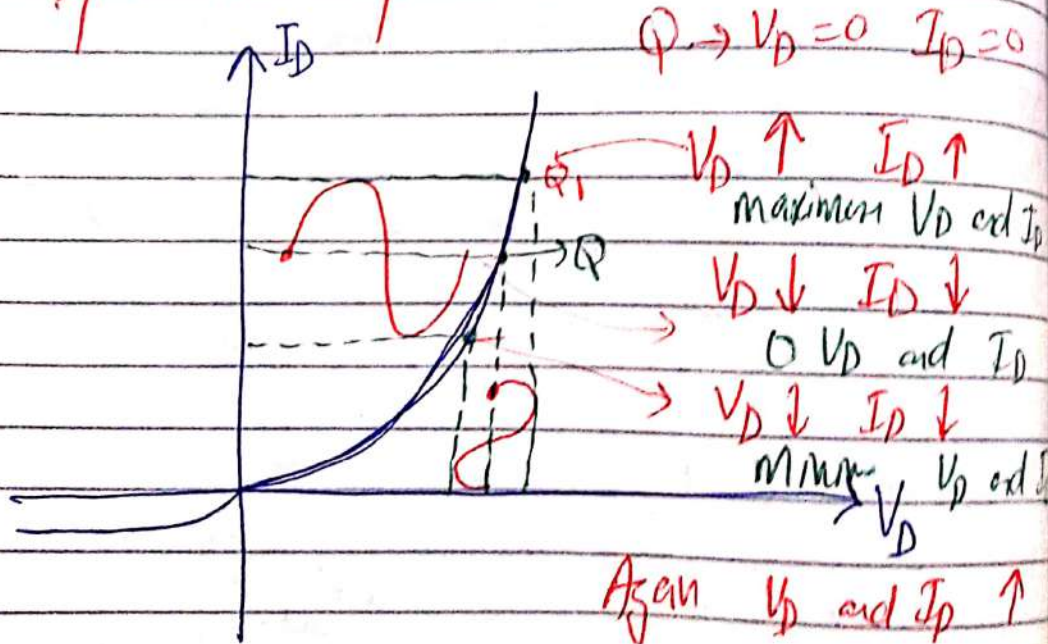 I_D
Q → V_D = 0 I_D = 0
V_D ↑ I_D ↑
Q₁
maximum V_D and I_D
→ Q
V_D ↓ I_D ↓
0 V_D and I_D
V_D ↓ I_D ↓
V_D and I
V_D
Again V_D and I_D ↑